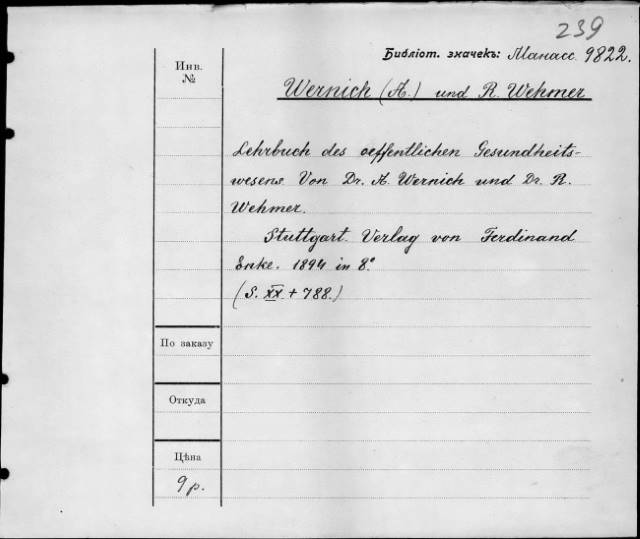 239
Библіот. значекъ: Манасс. 9822.
Инв.
№
Wernich (A.) und R. Wehmer
Lehrbuch des oeffentlichen Gesundheits-
wesens Von Dr. A. Wernich und Dr. R.
Wehmer.
Stuttgart. Verlag von Ferdinand
Enke. 1894 in 8.°
(S. XX + 788.)
По заказу
Откуда
Цѣна
9 р.